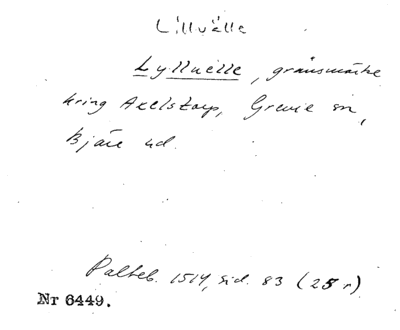 Lillvälle
Lylluelle, gränsmärke
kring Axelstorp, Grevie sn,
Bjäre hd.
Palteb. 1514, sid. 83 (25 r).
Nr 6449.